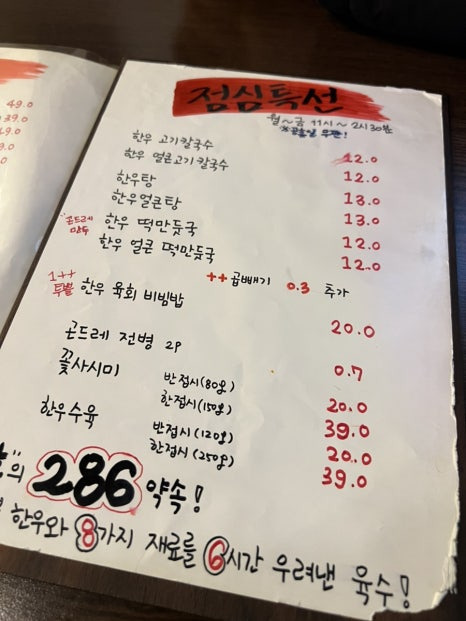 49.0
39.0
점심특선
월~금 11시~2시30분
※공휴일 무관!
한우 고기칼국수 12.0
한우 얼큰고기칼국수 12.0
한우탕 13.0
한우얼큰탕 13.0
곤드레만두 한우 떡만둣국 12.0
한우 얼큰 떡만둣국 12.0
++곱빼기 0.3 추가
1++ 투뿔 한우 육회 비빔밥 20.0
곤드레 전병 2P 0.7
꽃사시미 반접시(80g) 20.0
한접시(150g) 39.0
한우수육 반접시(120g) 20.0
한접시(250g) 39.0
의 286 약속!
한우와 8가지 재료를 6시간 우려낸 육수!